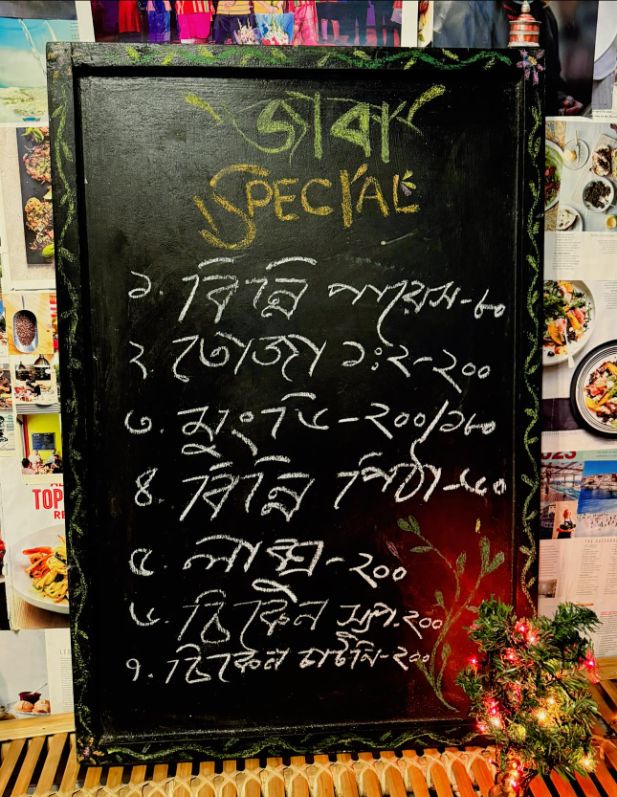 জাবা
SPECIAL
১. বিন্নি পায়েস-৮০
২. তোজা ১:২-২০০
৩. মুংডি-২০০/১৮০
৪. বিন্নি পিঠা-
৫. লাক্সা-২০০
৬. চিকেন স্যুপ-২০০
৭. চিকেন চাটনি-২০০
TOP